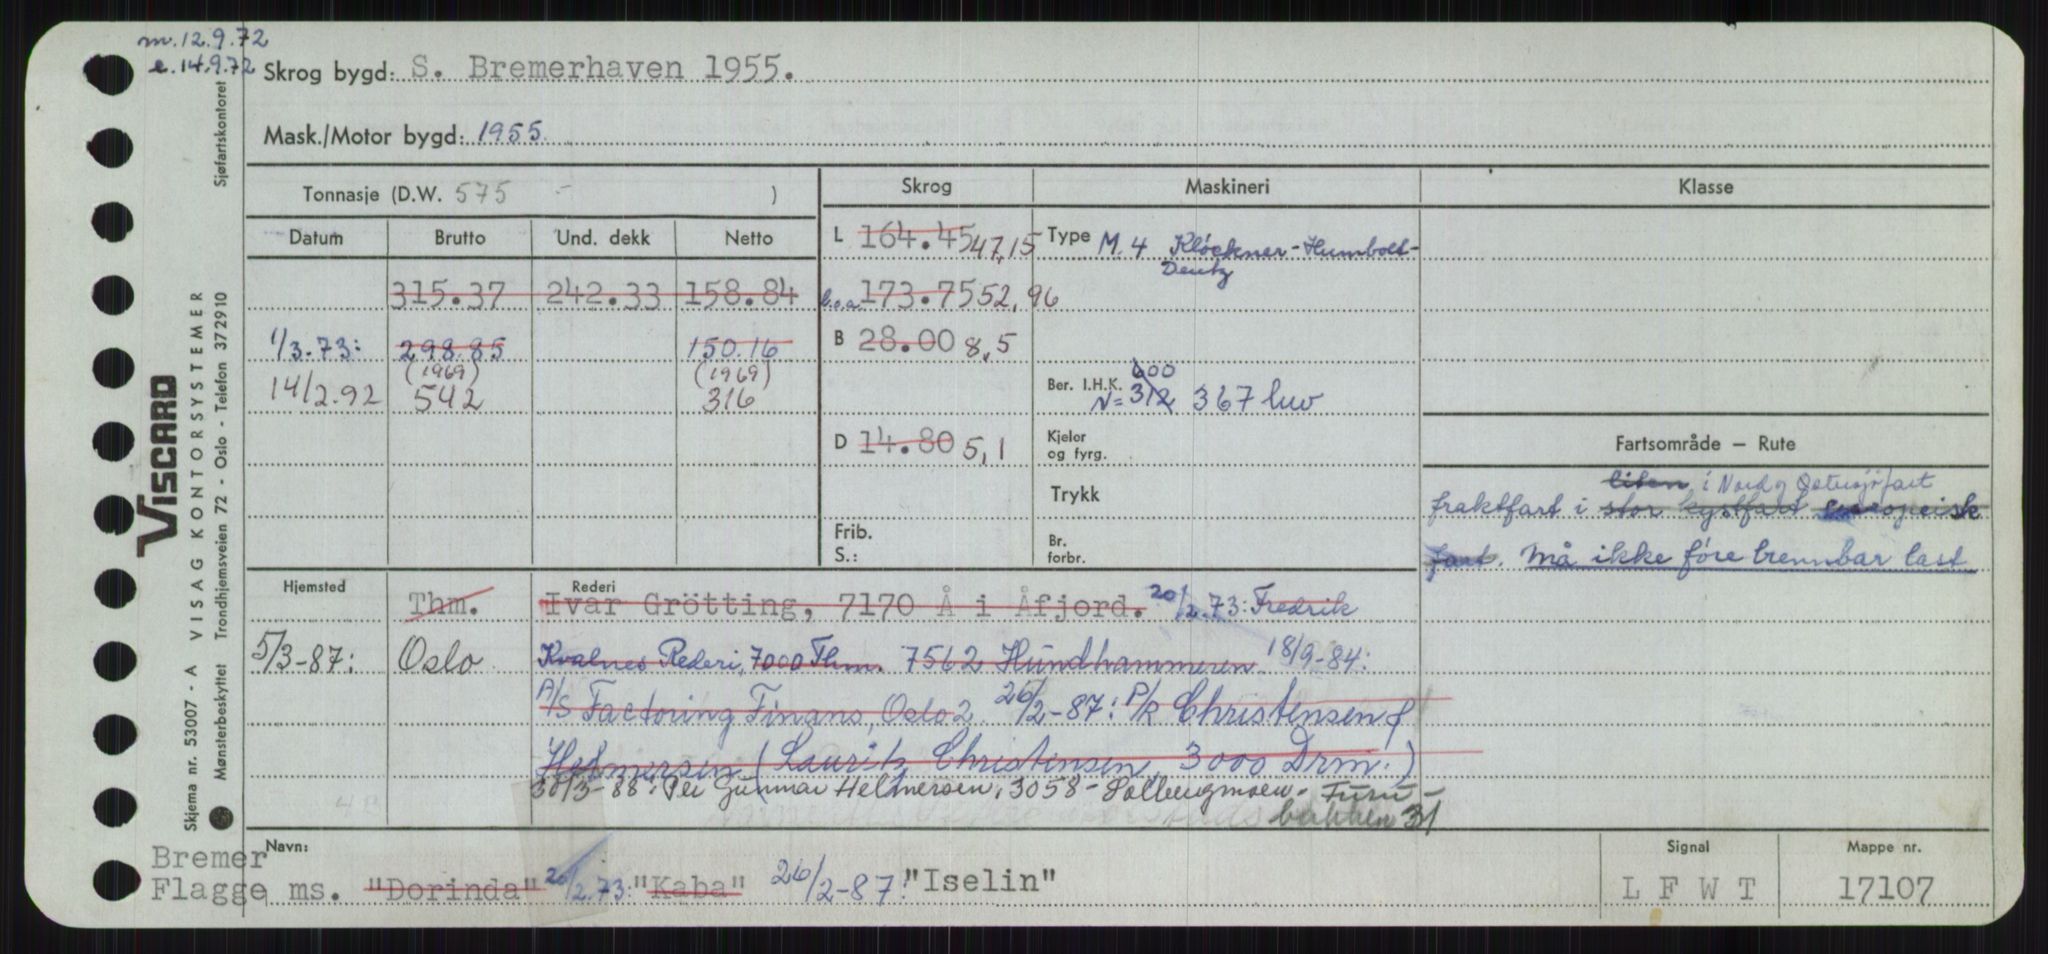 m. 12.9.72
e. 14.9.72
Skrog bygd: S. Bremerhaven 1955.
Mask./Motor bygd: 1955.
Tonnasje (D.W. 575 - ) Skrog Maskineri Klasse
Datum Brutto Und. dekk Netto L 164.45 47,15 Type M. 4 Kløckner-Humbolt-
Deutz
315.37 242.33 158.84 l.o.a. 173.75 52,96
1/3.73: 298.85 150.16 B 28.00 8,5
(1969) (1969)
14/2.92 542 316 Ber. I.H.K. 600
N= 312 367 hw
D 14.80 5,1 Kjeler
og fyrg. Fartsområde – Rute
Trykk liten i Nord og Østersjøfart
fraktfart i stor kystfart europeisk
Frib.
S.: Br.
forbr. fart. Må ikke føre brennbar last
Hjemsted Rederi
Thm. Ivar Grötting, 7170 Å i Åfjord. 20/2.73: Fredrik
5/3-87: Oslo Kvalnes Rederi, 7000 Thm. 7562 Hundhammeren 18/9-84:
A/S Factoring Finans, Oslo 2 26/2-87: P/R Christensen &
Helmersen (Lauritz Christensen 3000 Drm.)
30/3-88: Per Gunnar Helmersen, 3058 - Solbergmoen - Furu-
bakken 31
Navn: Signal Mappe nr.
Bremer
Flagge ms. "Dorinda" 20/2.73: "Kaba" 26/2-87: "Iselin" L F W T 17107
Sjøfartskontoret
VISCARD
VISAG KONTORSYSTEMER
Trondhjemsveien 72 - Oslo - Telefon 372910
Skjema nr. 53007 - A
Mønsterbeskyttet